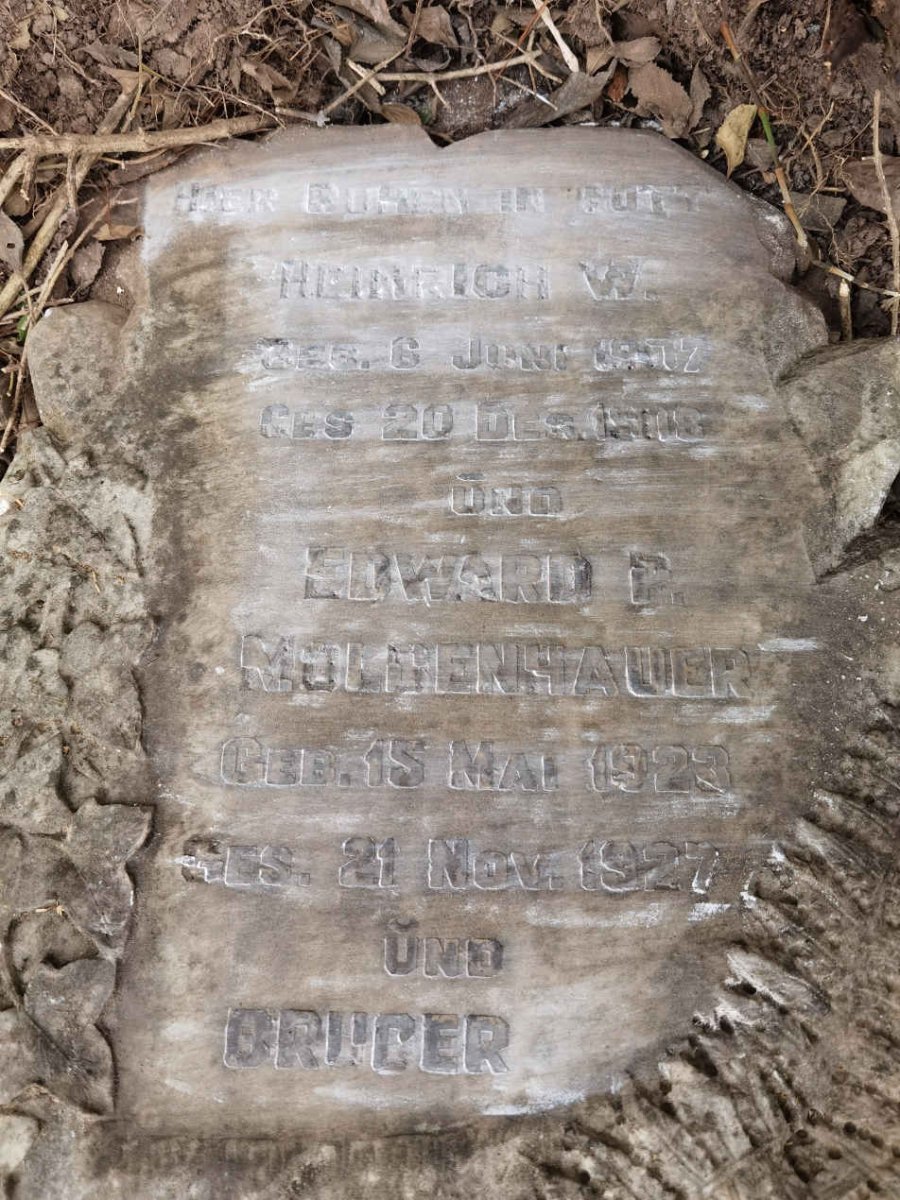 HIER RUHEN IN GOTT
HEINRICH W.
GEB. 6 JUNI
GES 20 DES.
ŬND
EDWARD P.
MOLDENHAUER
GEB. 15 MAI 1923
GES. 21 NOV. 1927
ŬND
BRÜDER